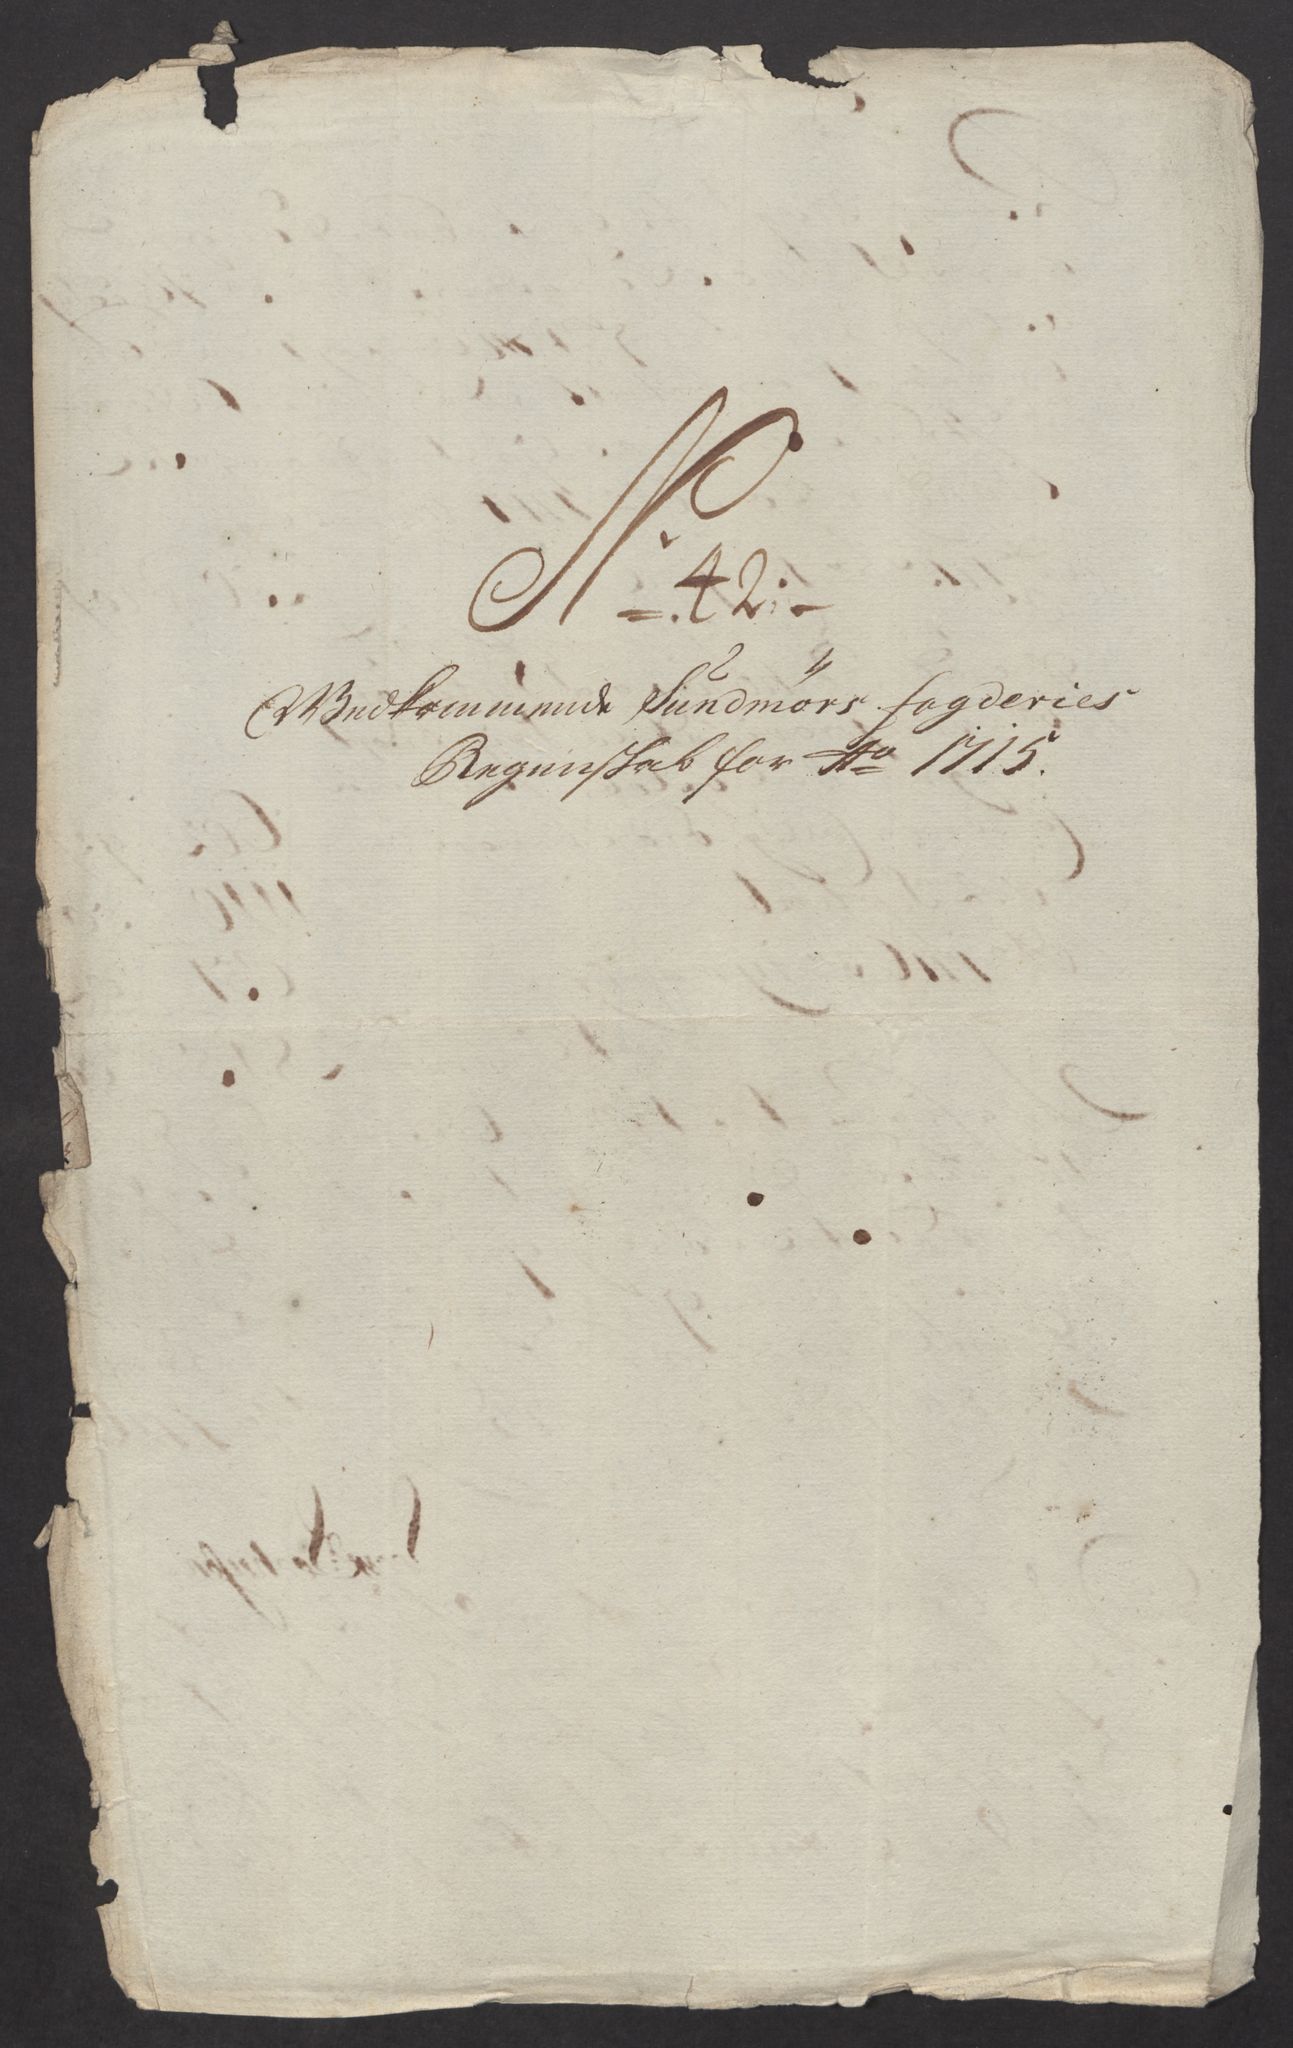 No
42:
Wedkommende Sundmörs fogderies
Regenskab for Ao 1715.